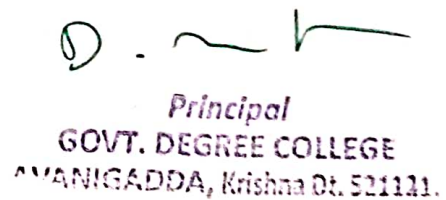 D.
Principal
GOVT. DEGREE COLLEGE
AVANIGADDA, Krishna Dt. 521121.